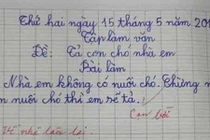 Thứ hai ngày 15 tháng 5 năm 201
Tập làm văn
Đề: Tả con chó nhà em
Bài làm
Nhà em không có nuôi chó. Chừng n
m nuôi chó thì em sẽ tả.